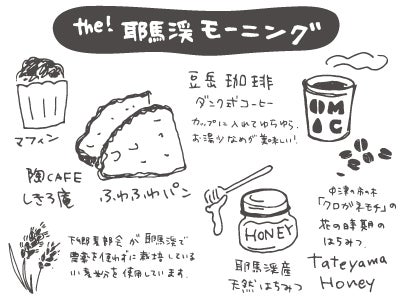 the! 耶馬渓モーニング
マフィン
陶CAFE
しきろ庵
ふわふわパン
豆岳珈琲
ダンク式コーヒー
カップに入れてゆらゆら。
お湯少なめが美味しい!
OMOC
下郷農部会が耶馬渓で
農薬を使わずに栽培している
小麦粉を使用しています。
HONEY
耶馬渓産
天然はちみつ
中津の市の木
「クロガネモチ」の
花の時期の
はちみつ。
Tateyama
Honey